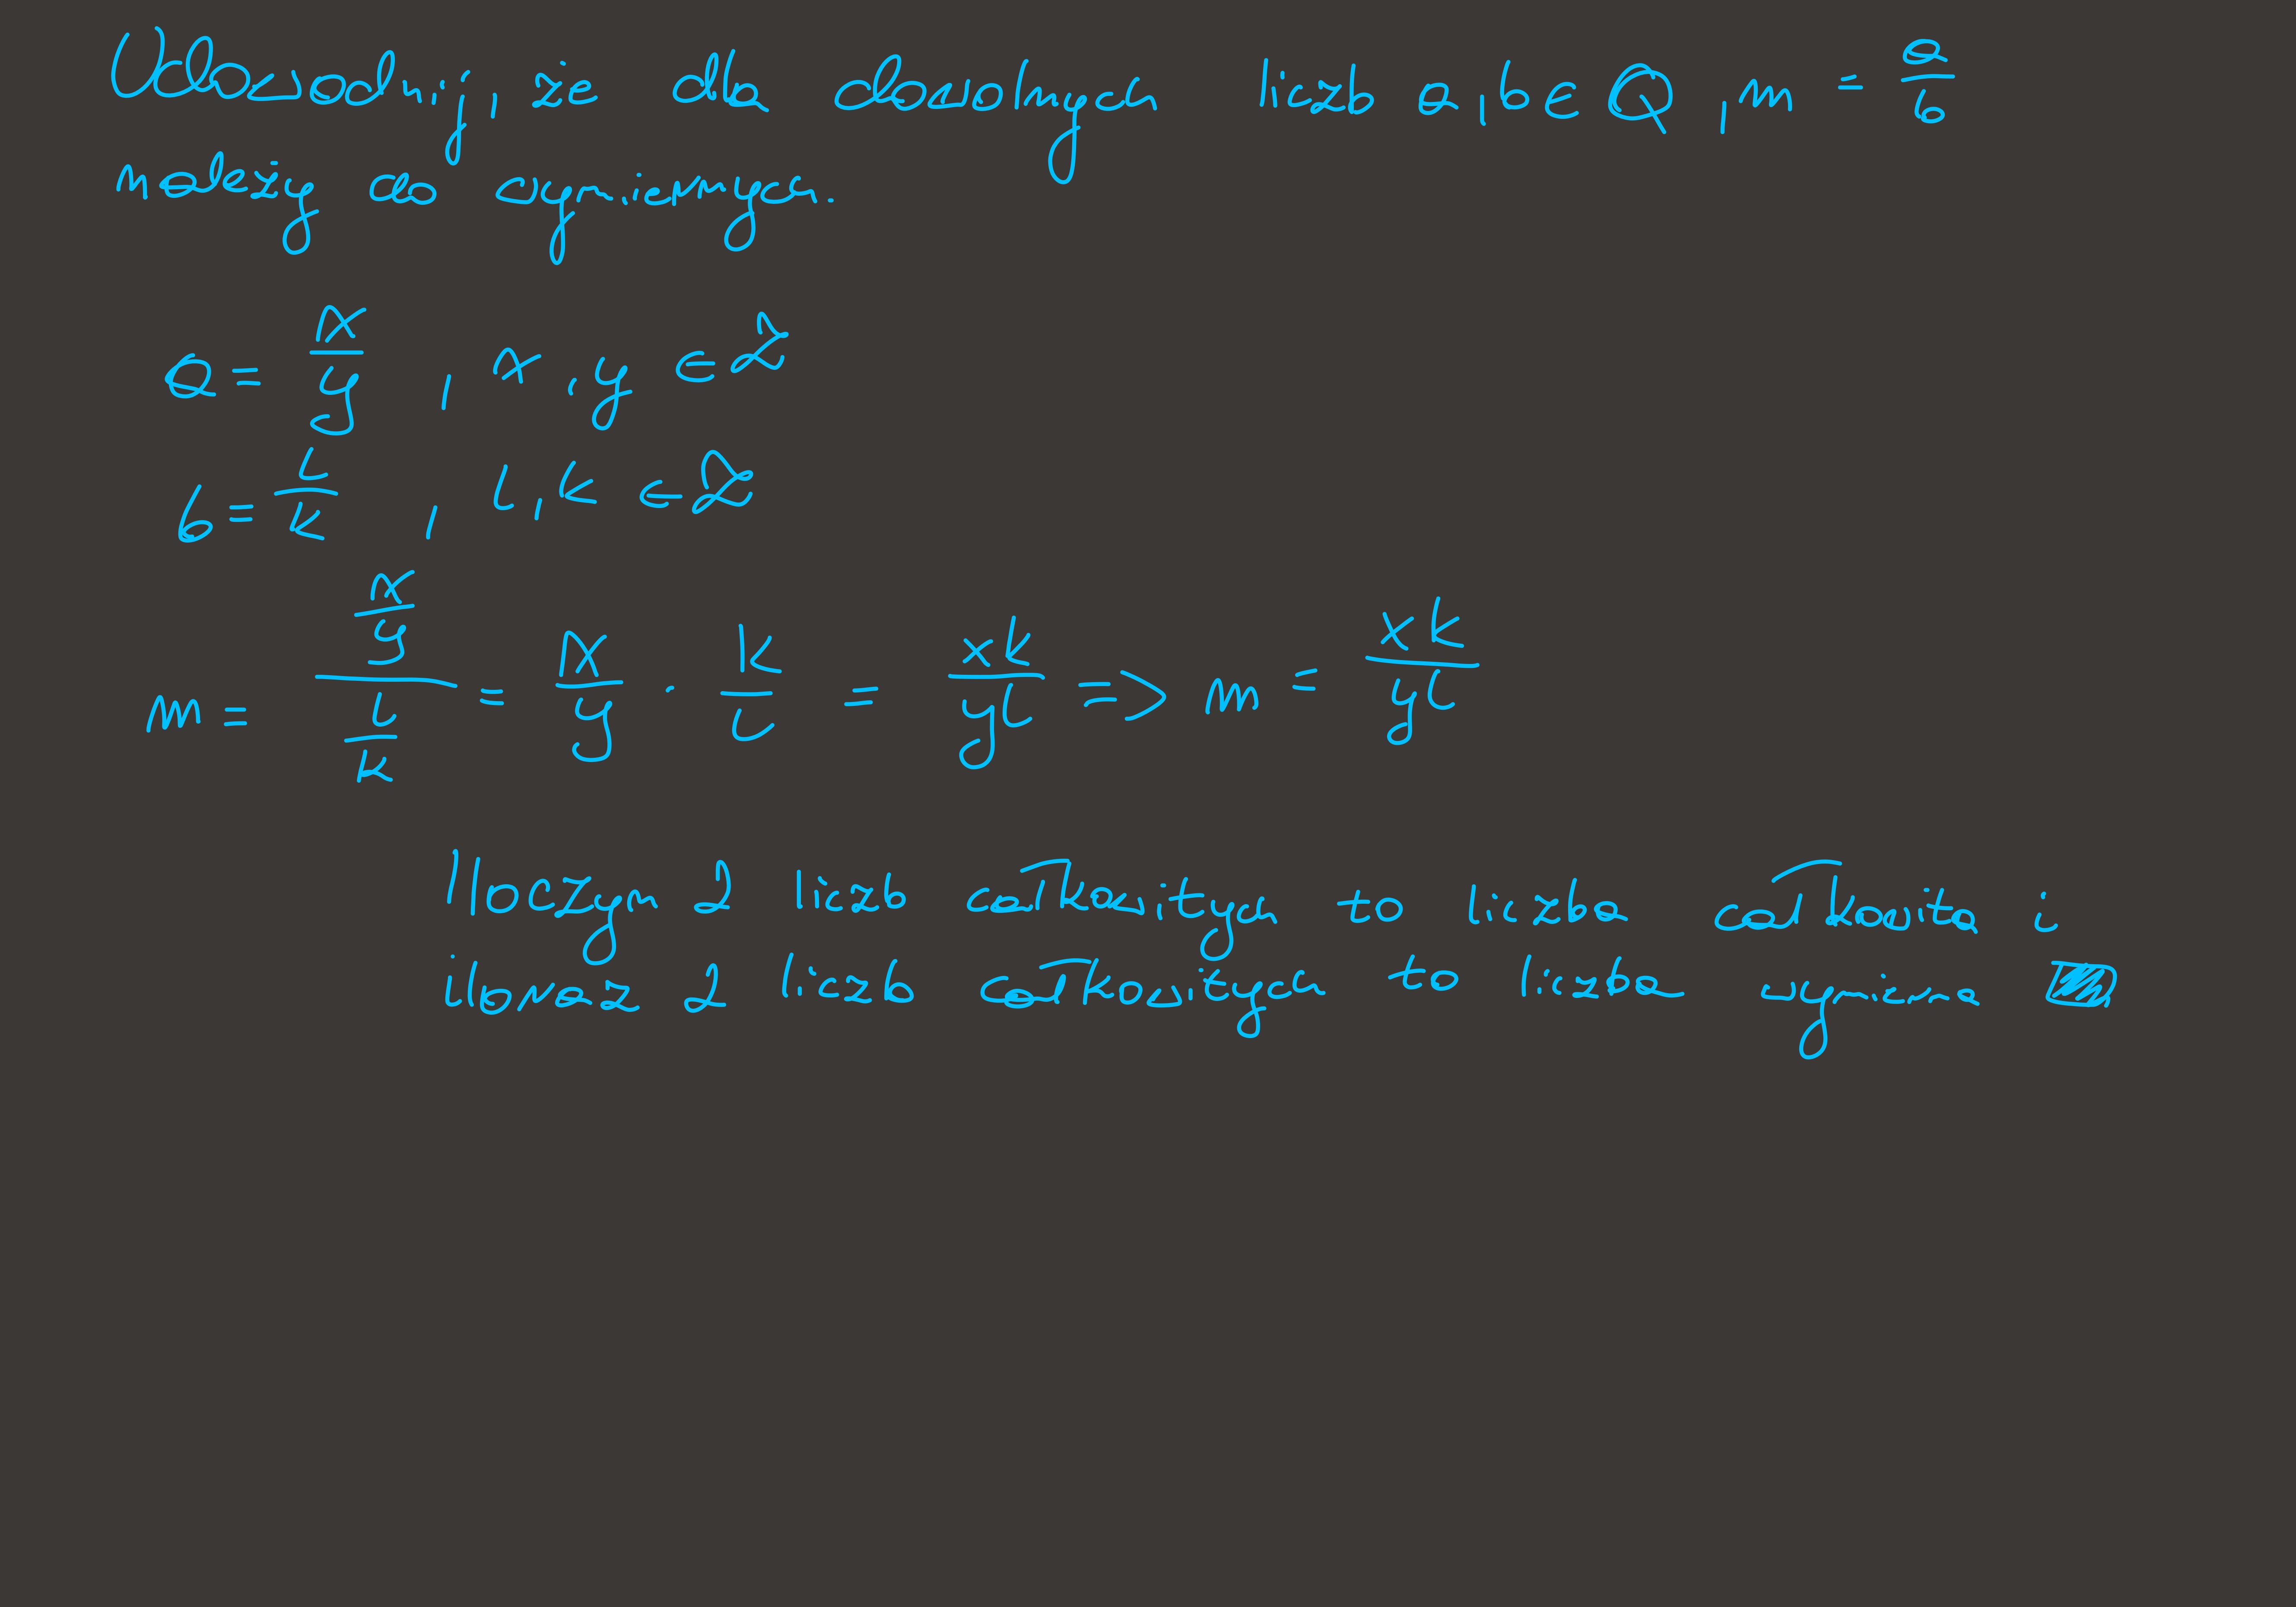 Udowodnij, że dla dowolnych liczb a, b ∈ Q, m = a/b
należy do wymiernych.
a = x/y , x, y ∈ Z
b = l/k , l, k ∈ Z
m = (x/y)/(l/k) = x/y · k/l = xk/yl => m = xk/yl
Iloczyn 2 liczb całkowitych to liczba całkowita i
iloraz 2 liczb całkowitych to liczba wymierna